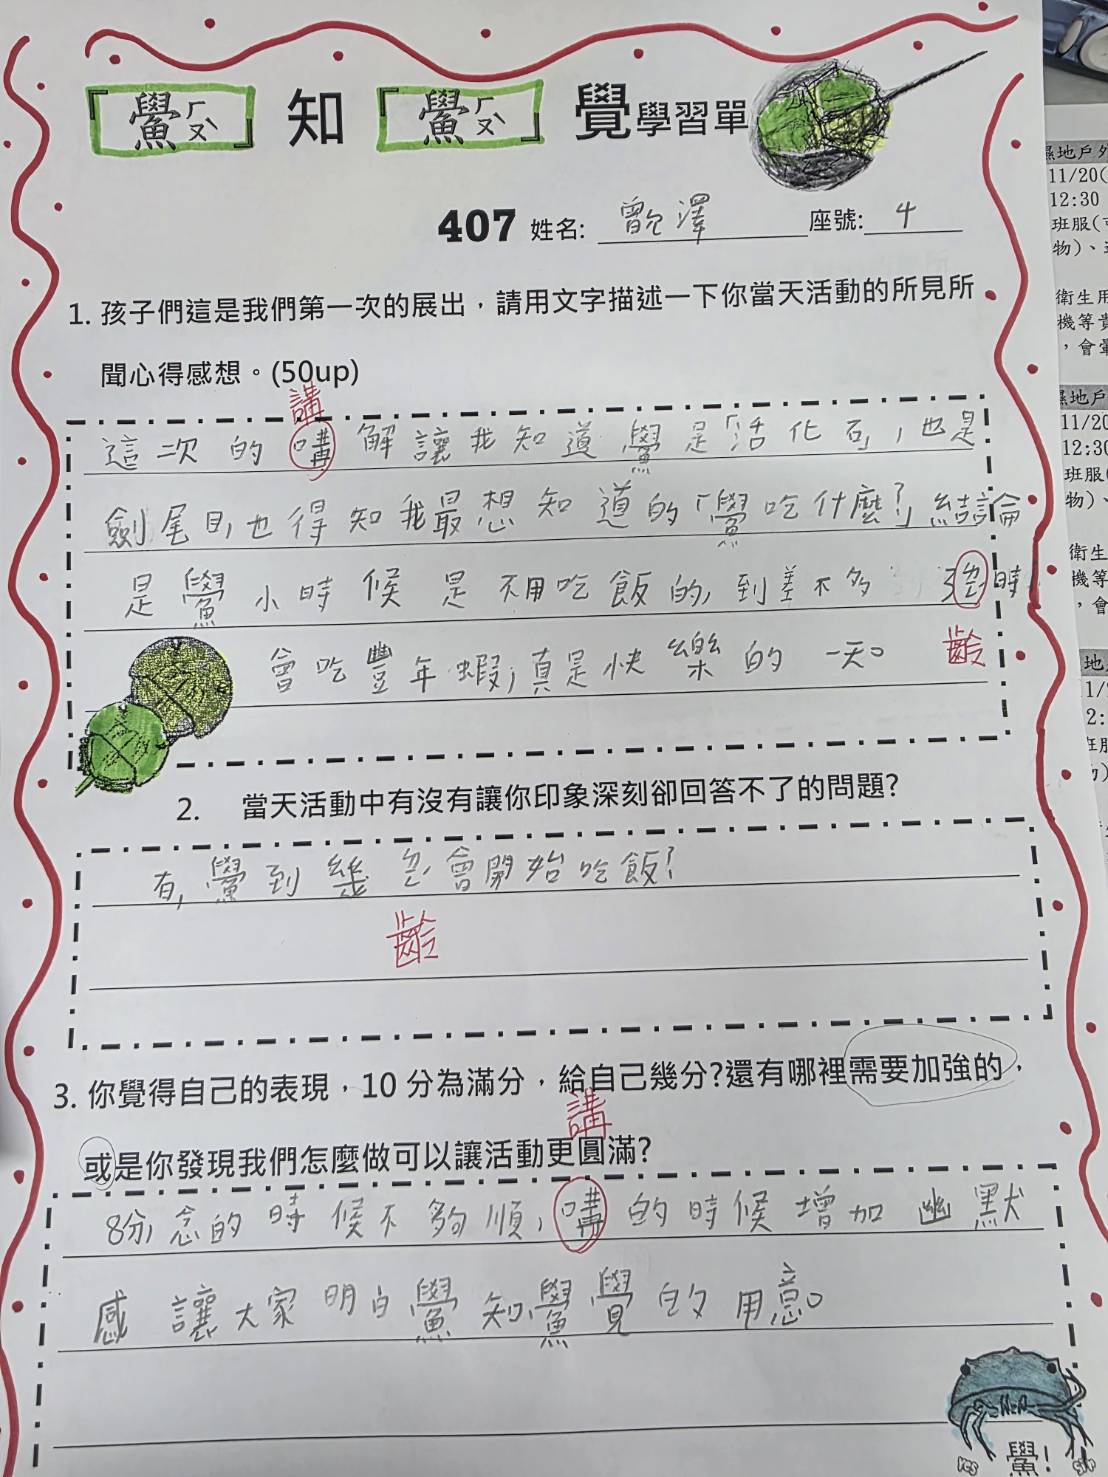 「鱟ㄏㄡˋ」知「鱟ㄏㄡˋ」覺學習單
407 姓名: 澤 座號: 4
1. 孩子們這是我們第一次的展出，請用文字描述一下你當天活動的所見所
聞心得感想。(50up)
講
這次的嗊解讓我知道鱟是「活化石」，也是
劍尾目，也得知我最想知道的「鱟吃什麼?」結論
是鱟小時候是不用吃飯的，到差不多 3忽時
齡
會吃豐年蝦，真是快樂的一天。
2. 當天活動中有沒有讓你印象深刻卻回答不了的問題?
有，鱟到幾忽會開始吃飯?
齡
3. 你覺得自己的表現，10 分為滿分，給自己幾分?還有哪裡需要加強的，
或是你發現我們怎麼做可以讓活動更圓滿?
講
8分，念的時候不夠順，的時候增加幽默
感讓大家明白鱟知鱟覺的用意。
yes sir
鱟!
濕地戶外
11/20(
12:30
班服(
物)、
衛生用
機等貴
，會
濕地戶
11/20
12:30
班服
物)、
衛生
機等
，會
地